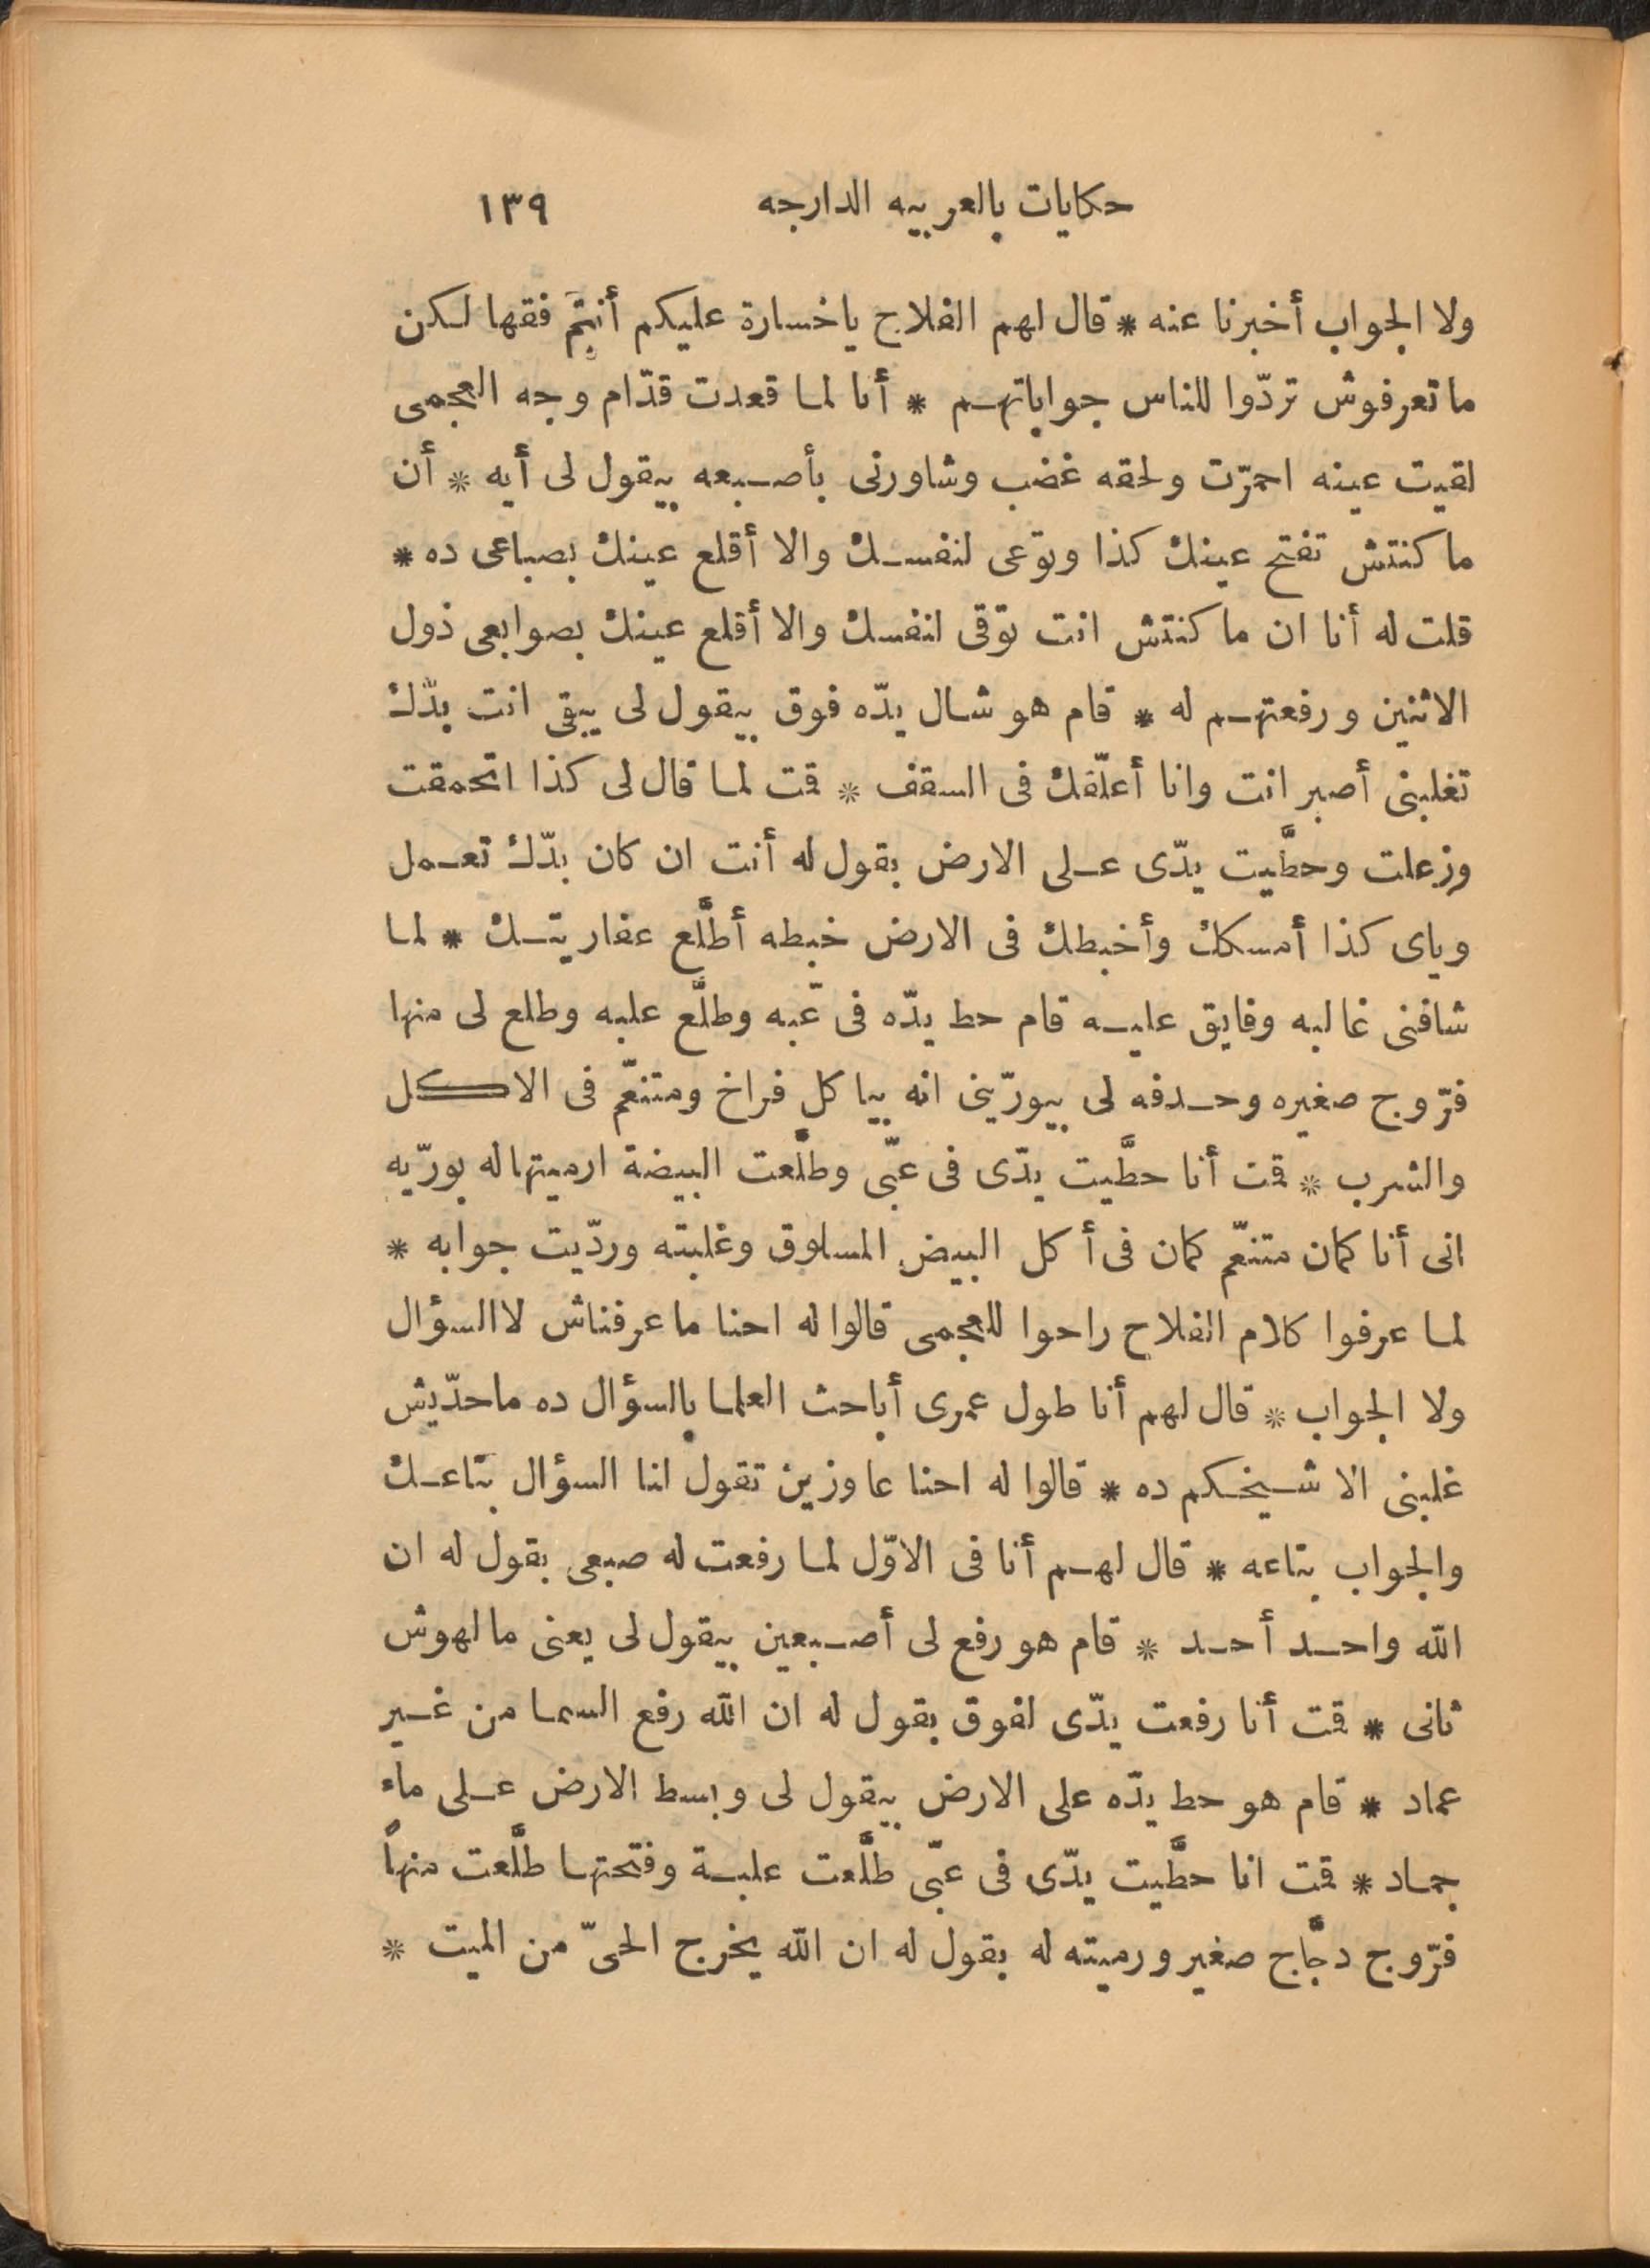 حكايات بالعربيه الدارجه ١٣٩
ولا الجواب أخبرنا عنه * قال لهم الفلاح ياخسارة عليكم أنتم فقها لكن
ماتعرفوش تردّوا للناس جواباتهم * أنا لما قعدت قدّام وجه العجمى
لقيت عينه احمرّت ولحقه غضب وشاورنى بأصبعه بيقول لى أيه * أن
ما كنتش تفتح عينك كذا وتوعى لنفسك والا أقلع عينك بصباعى ده *
قلت له أنا ان ما كنتش انت توّقى لنفسك والا أقلع عينك بصوابعى ذول
الاثنين ورفعتهم له * قام هو شال يدّه فوق بيقول لى يبقى انت بدّك
تغلبنى أصبر انت وانا أعلّقك فى السقف * قت لما قال لى كذا اتحمقت
وزعلت وحطّيت يدّى على الارض بقول له أنت ان كان بدّك تعمل
وياى كذا أمسكك وأخبطك فى الارض خبطه أطلّع عفاريتك * لما
شافنى غالبه وفايق عليه قام حط يدّه فى عّبه وطلّع علبه وطلع لى منها
فرّوج صغيره وحدفه لى بيورّينى انه بياكل فراخ ومتنعّم فى الاكل
والشرب * قت أنا حطّيت يدّى فى عبّى وطلّعت البيضة ارميتها له بورّيه
انى أنا كمان متنعّم كمان فى أكل البيض المسلوق وغلبته وردّيت جوابه *
لما عرفوا كلام الفلاح راحوا للعجمى قالوا له احنا ماعرفناش لا السؤال
ولا الجواب * قال لهم أنا طول عمرى أباحث العلما بالسؤال ده ماحدّيش
غلبنى الا شيخكم ده * قالوا له احنا عاوزين تقول لنا السؤال بتاعك
والجواب بتاعه * قال لهم أنا فى الاوّل لما رفعت له صبعى بقول له ان
الله واحد أحد * قام هو رفع لى أصبعين بيقول لى يعنى مالهوش
ثانى * قت أنا رفعت يدّى لفوق بقول له ان الله رفع السما من غير
عماد * قام هو حط يدّه على الارض بيقول لى وبسط الارض على ماء
جماد * قت انا حطّيت يدّى فى عبّى طلّعت علبة وفتحتها طلّعت منها
فرّوج دجّاج صغير ورميته له بقول له ان الله يخرج الحىّ من الميت *